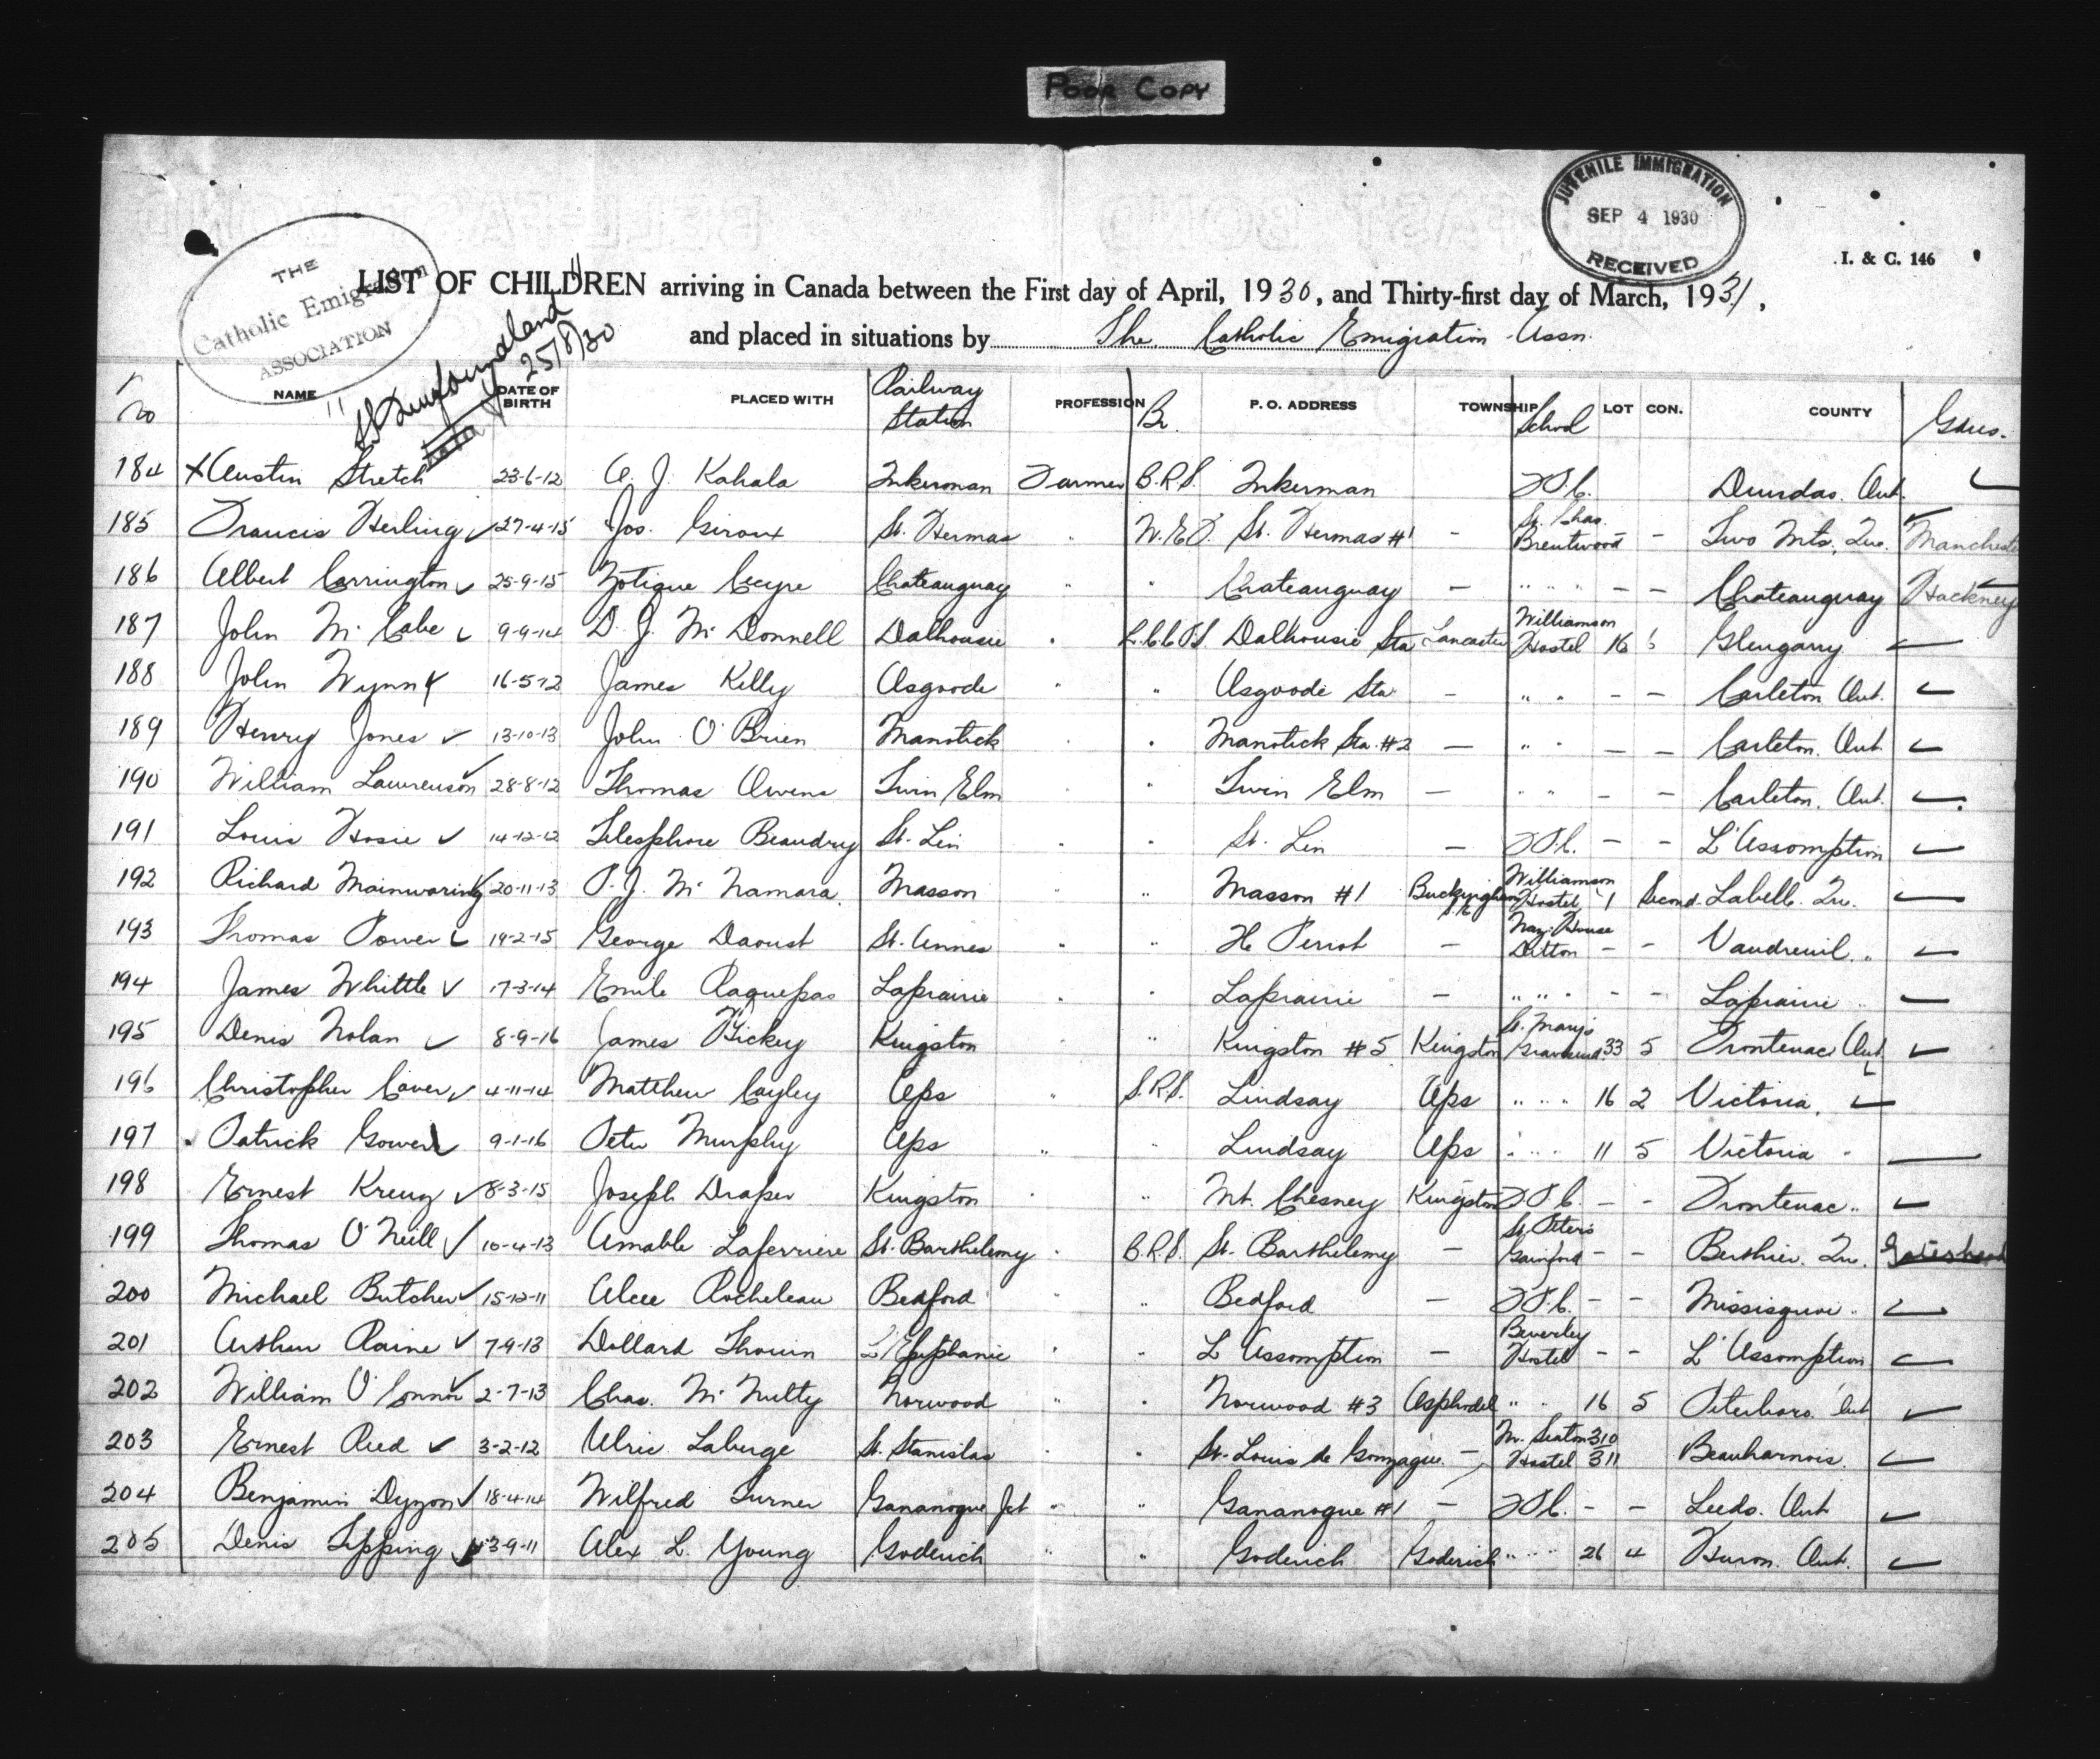 POOR COPY
JUVENILE IMMIGRATION
SEP 4 1930
RECEIVED
I. & C. 146
THE
Catholic Emigration
ASSOCIATION
LIST OF CHILDREN arriving in Canada between the First day of April, 1930, and Thirty-first day of March, 1931,
and placed in situations by The Catholic Emigration Assn.
25/8/30
No NAME DATE OF BIRTH PLACED WITH Railway Station PROFESSION Br. P. O. ADDRESS TOWNSHIP School LOT CON. COUNTY
184 x Austin Stretch 23-6-12 A. J. Kahala Inkerman Farmer B.R.S. Inkerman Dundas. Ont.
185 Francis Herling 27-4-15 Jos. Giroux St. Hermas " St. Hermas #1 - St. Chas. Brentwood - Two Mts., Que. Manchester
186 Albert Carrington 25-9-15 Zotique Cecyre Chateauguay " " Chateauguay - " " " - - Chateauguay Hackney
187 John McCabe 9-9-14 D. J. McDonnell Dalhousie " Dalhousie Sta Lancaster Williamson Hostel 16 Glengarry
188 John Wynn 16-5-12 James Kelly Osgoode " " Osgoode Sta - " " - - Carleton Ont.
189 Henry Jones 13-10-13 John O'Brien Manotick " " Manotick Sta. #2 - " " - - Carleton. Ont.
190 William Lawrenson 28-8-12 Thomas Owens Twin Elm " " Twin Elm - " " - - Carleton. Ont.
191 Louis Hosie 14-12-12 Telesphore Beaudry St. Lin " " St. Lin - - - L'Assomption
192 Richard Mainwaring 20-11-13 P. J. McNamara Masson " " Masson #1 Buckingham Williamson Hostel 1 Second. Labelle. Qu.
193 Thomas Power 19-2-15 George Daoust St. Annes " " Perrot - Naz. House Ditton - - Vaudreuil "
194 James Whittle 17-3-14 Emile Paquepas Laprairie " " Laprairie - " " " - - Laprairie "
195 Denis Nolan 8-9-16 James Hickey Kingston " " Kingston #5 Kingston St. Mary's Gravesend 33 5 Frontenac Ont
196 Christopher Caver 4-11-14 Matthew Cayley Ops " S.R.S. Lindsay Ops " " " 16 2 Victoria.
197 Patrick Gower 9-1-16 Peter Murphy Ops " " Lindsay Ops " " " 11 5 Victoria "
198 Ernest Kreuz 8-3-15 Joseph Draper Kingston " " Mt. Chesney Kingston - - Frontenac "
199 Thomas O'Neill 10-4-13 Amable Laferriere St. Barthelemy " B.R.S. St. Barthelemy - St. Peter's Gainford - - Berthier. Qu. Gateshead
200 Michael Butcher 15-12-11 Alcee Rocheleau Bedford " " Bedford - - - Missisquoi "
201 Arthur Raine 7-9-13 Dollard Thouin L'Epiphanie " " L'Assomption - Beverley Hostel - - L'Assomption
202 William O'Connor 2-7-13 Chas. McNulty Norwood " " Norwood #3 Asphodel " " 16 5 Peterboro. Ont
203 Ernest Reed 3-2-12 Ulric Laberge St. Stanislas " " St. Louis de Gonzague - Seaton Hostel 310 311 Beauharnois.
204 Benjamin Dyson 18-4-14 Wilfred Turner Gananoque Jct " " Gananoque #1 - - - Leeds. Ont
205 Denis Tipping 3-9-11 Alex L. Young Goderich " " Goderich Goderich " " " 26 4 Huron. Ont.